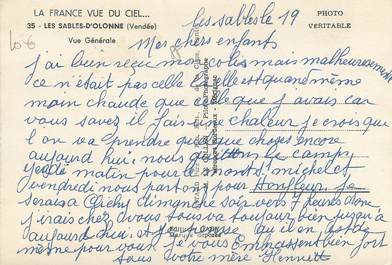 LA FRANCE VUE DU CIEL...
35 - LES SABLES-D'OLONNE (Vendée)
Vue Générale
PHOTO
VÉRITABLE
Les sables le 19
Mes chers enfants
j'ai bien reçu mon colis mais malheureusement
ce n'était pas celle la elle est quand même
moin chaude que celle que j'avais car
vous savez il fais une chaleur je crois que
l'on va prendre quelque choses encore
aujourd hui. nous le camp
matin pour le mont S. michel et
vendredi nous partons pour Honfleur. je
serais a Clichy dimanche soir vers 7 heures donc
j'irais chez vous tous va toujour bien jusqu'a
aujourd hui. et j' qu'il en est de
même pour vous je vous Emmbrassent bien fort
tous votre mère Henriett